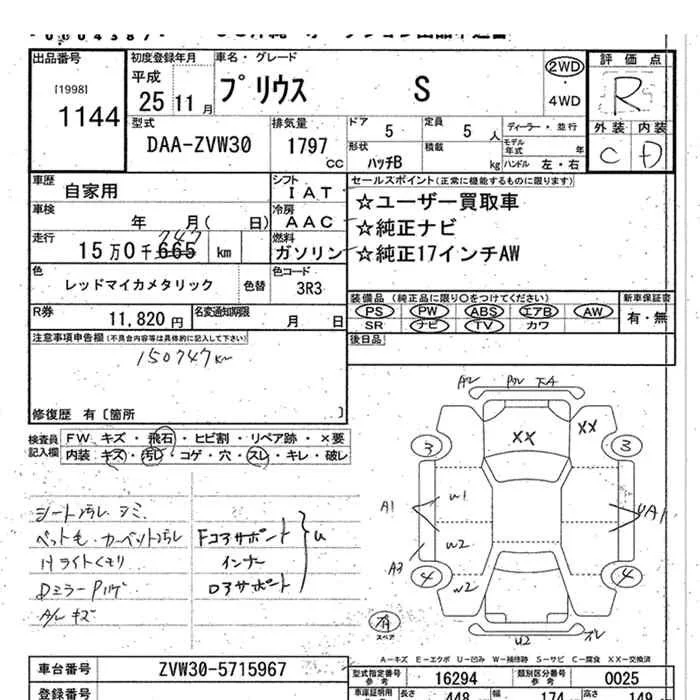 出品番号
[1998]
1144
初度登録年月
平成
25 11月
車名・グレード
プリウス S
2WD
・
4WD
評価点
R
外装 内装
C D
型式
DAA-ZVW30
排気量
1797
cc
ドア 5
定員 5 人
形状 ハッチB
積載 kg
ディーラー・並行
モデル年式 年
ハンドル 左・右
車歴
自家用
シフト
IAT
車検
年 月( 日)
冷房
AAC
走行
15万0千665 km
747
燃料
ガソリン
色
レッドマイカメタリック
色替
色コード
3R3
R券
11,820円
名変通知期限
月 日
セールスポイント(正常に機能するものに限ります)
☆ユーザー買取車
☆純正ナビ
☆純正17インチAW
装備品(純正品に限り〇をつけてください)
PS PW ABS エアB AW
SR ナビ TV カワ
新車保証書
有・無
後日品
注意事項申告欄(不具合内容等は具体的に記入して下さい)
150747km
修復歴 有〔箇所 〕
検査員
記入欄
FW キズ・飛石・ヒビ割・リペア跡・×要
内装 キズ・汚レ・コゲ・穴・スレ・キレ・破レ
シート汚レ シミ
ペット毛・カーペット汚レ
Hライトくもり
A/Lキズ
Fコアサポート
インナー
ロアサポート
u
A2
XX
XX
3
3
A1
W1
W2
A3
4
4
W2
U2
有
スペア
A-キズ E-エクボ U-凹み W-補修跡 S-サビ C-腐食 XX-交換済
車台番号
ZVW30-5715967
登録番号
型式指定番号
参考
16294
類別区分番号
参考
0025
長さ 448
幅 174
高さ 149